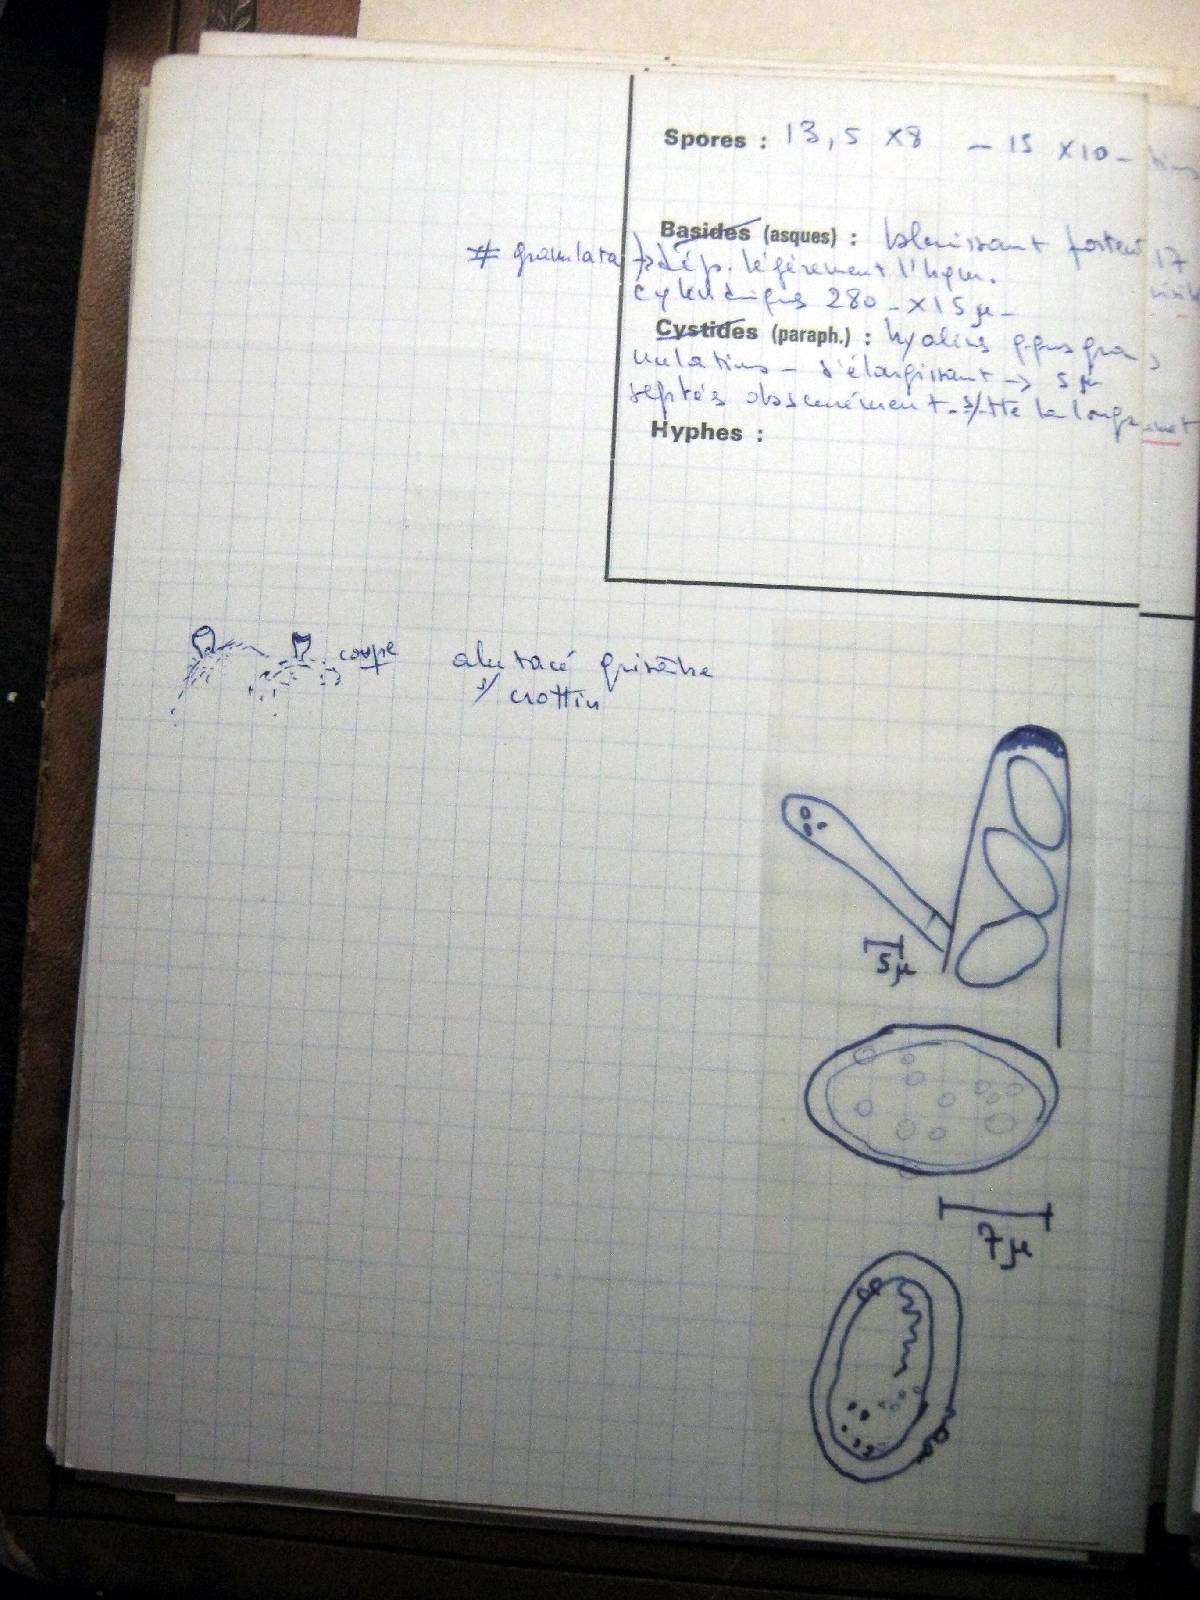 Spores : 13,5 ×8 – 15 ×10 –
Basides (asques) : bleuissant fortem
# granulata → dép. légèrement l'hym.
cylindriques 280 – ×15 µ –
Cystides (paraph.) : hyalins
s'élargissant → 5 µ
septés obscurément
Hyphes :
coupe alutacé grisâtre
s/ crottin
5µ
7µ
17